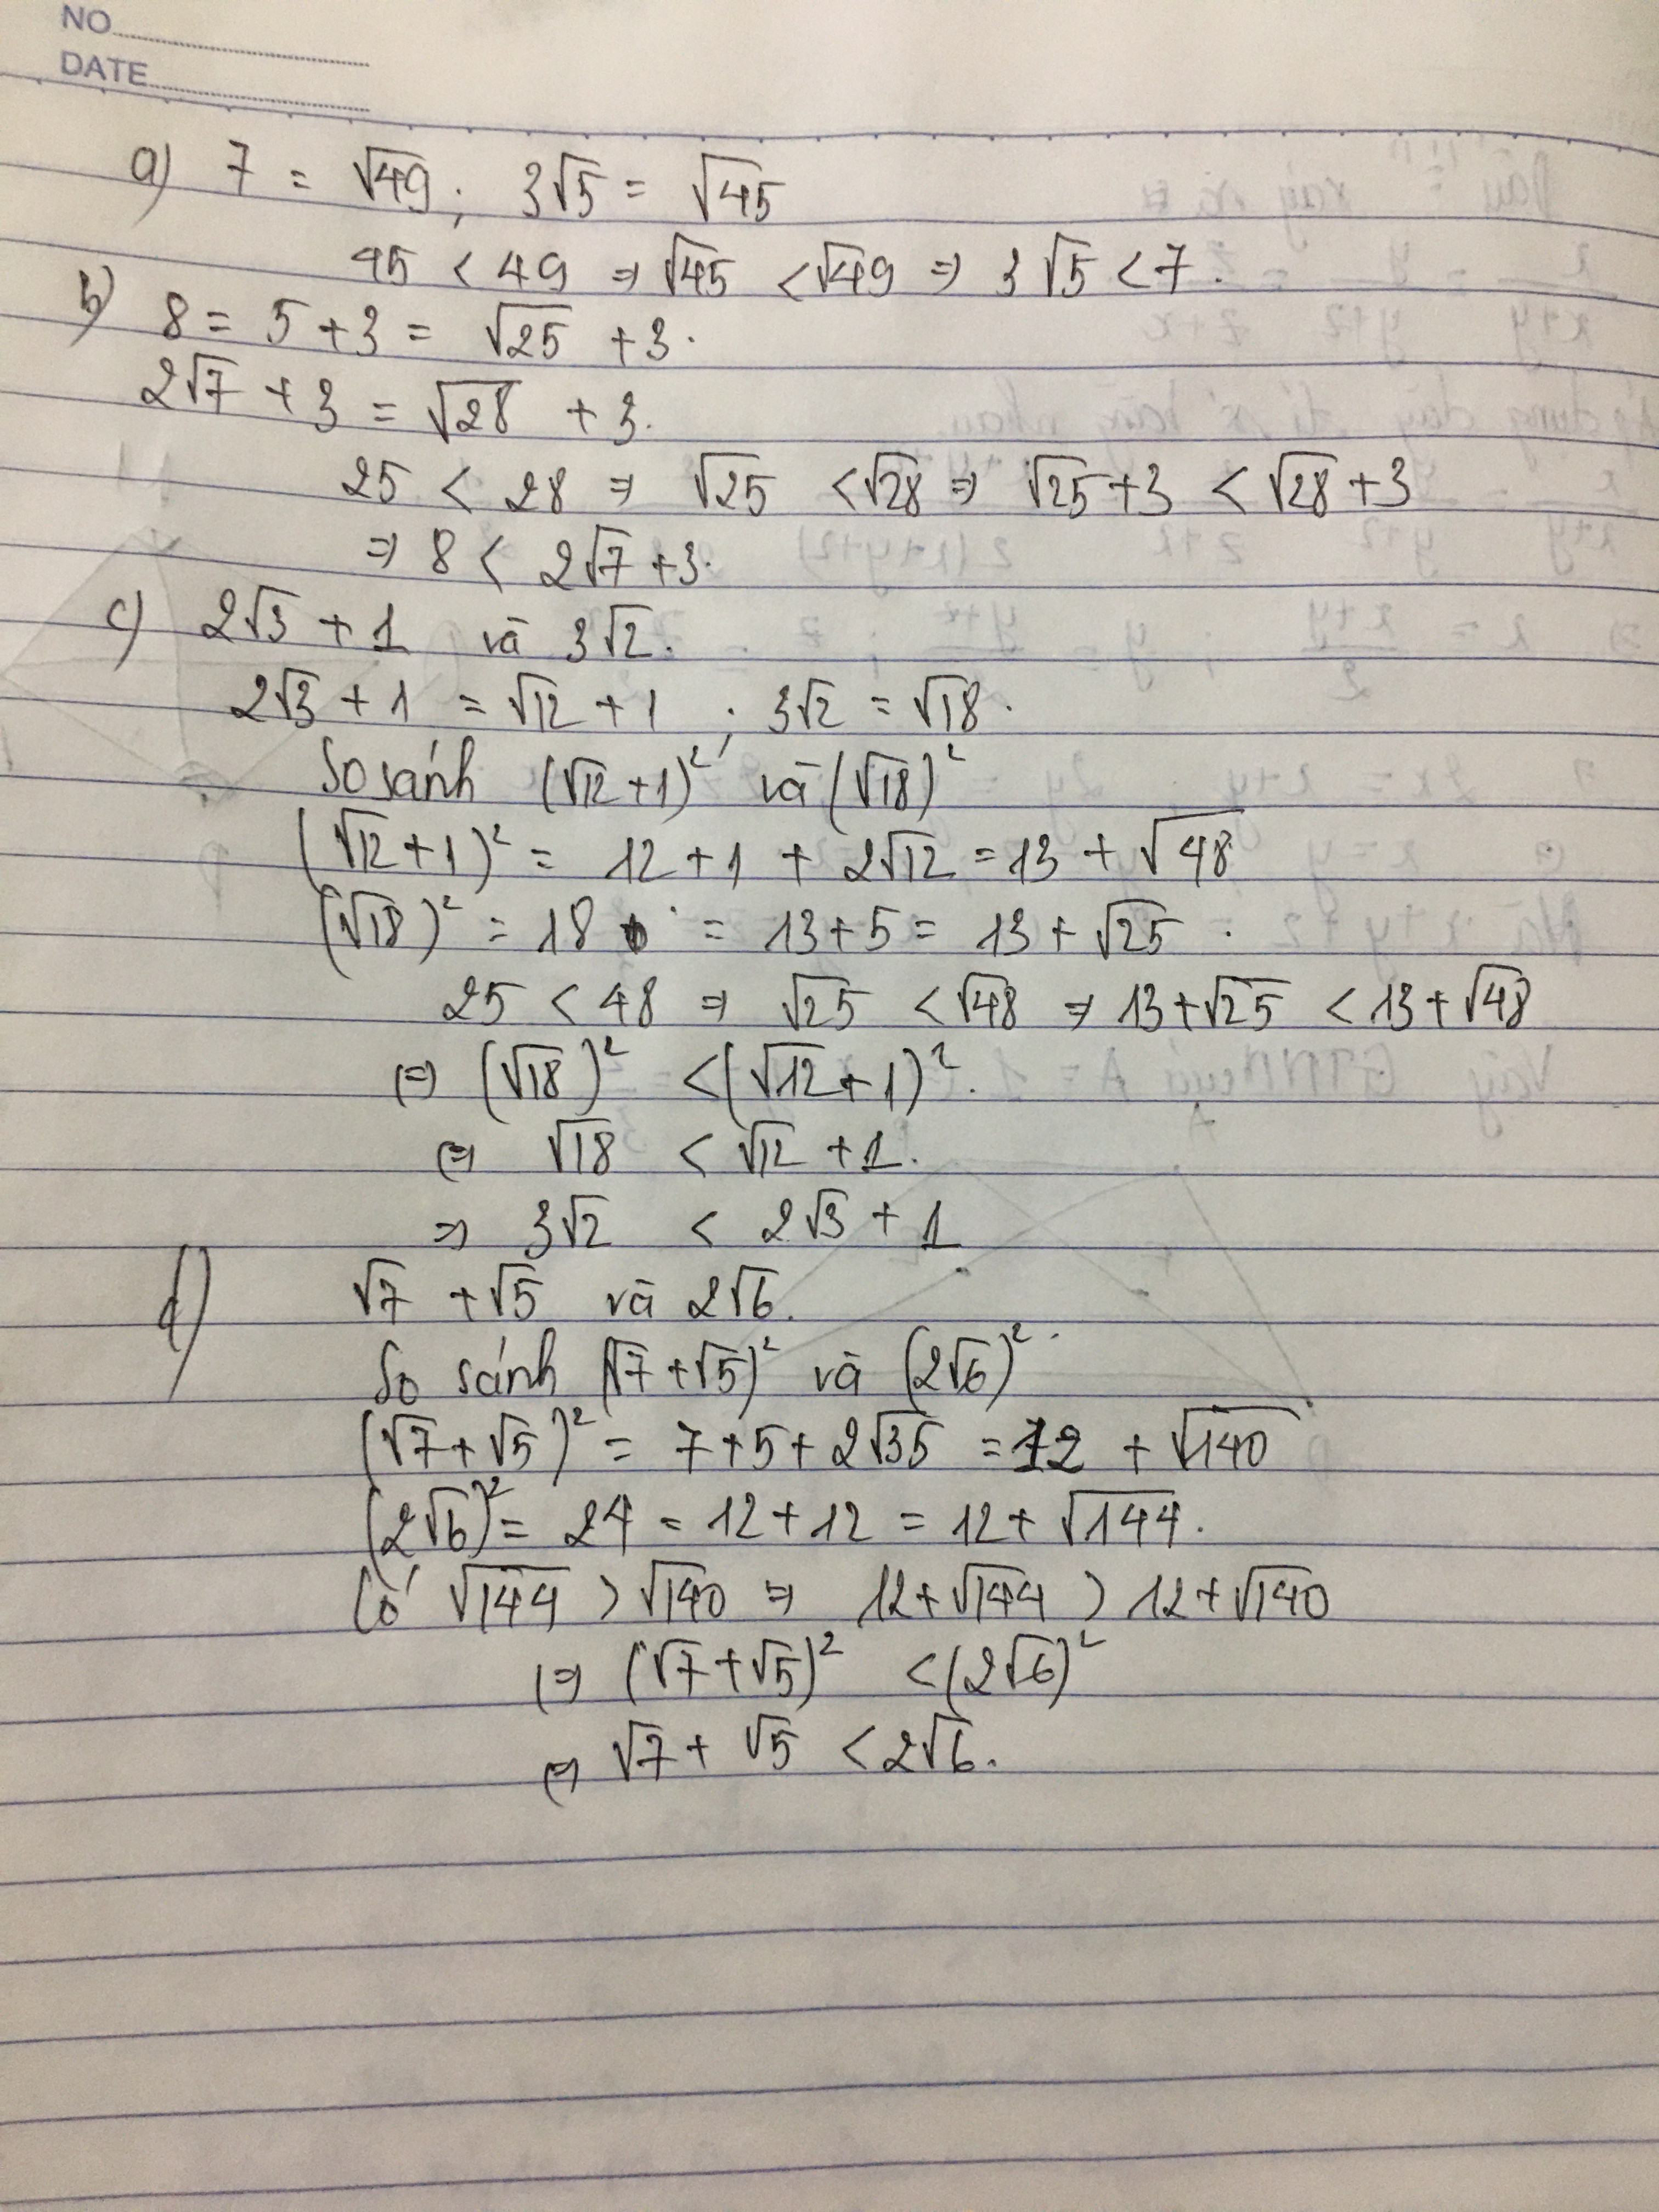 NO
DATE
a) 7 = √49 ; 3√5 = √45
45 < 49 ⇒ √45 < √49 ⇒ 3√5 < 7.
b) 8 = 5 + 3 = √25 + 3.
2√7 + 3 = √28 + 3.
25 < 28 ⇒ √25 < √28 ⇒ √25 + 3 < √28 + 3
⇒ 8 < 2√7 + 3.
c) 2√3 + 1 và 3√2.
2√3 + 1 = √12 + 1 ; 3√2 = √18.
So sánh (√12 + 1)² và (√18)²
(√12 + 1)² = 12 + 1 + 2√12 = 13 + √48
(√18)² = 18 = 13 + 5 = 13 + √25.
25 < 48 ⇒ √25 < √48 ⇒ 13 + √25 < 13 + √48
⇔ (√18)² < (√12 + 1)².
⇔ √18 < √12 + 1.
⇒ 3√2 < 2√3 + 1
d) √7 + √5 và 2√6.
So sánh (√7 + √5)² và (2√6)².
(√7 + √5)² = 7 + 5 + 2√35 = 12 + √140
(2√6)² = 24 = 12 + 12 = 12 + √144.
Có √144 > √140 ⇒ 12 + √144 > 12 + √140
⇔ (√7 + √5)² < (2√6)²
⇔ √7 + √5 < 2√6.